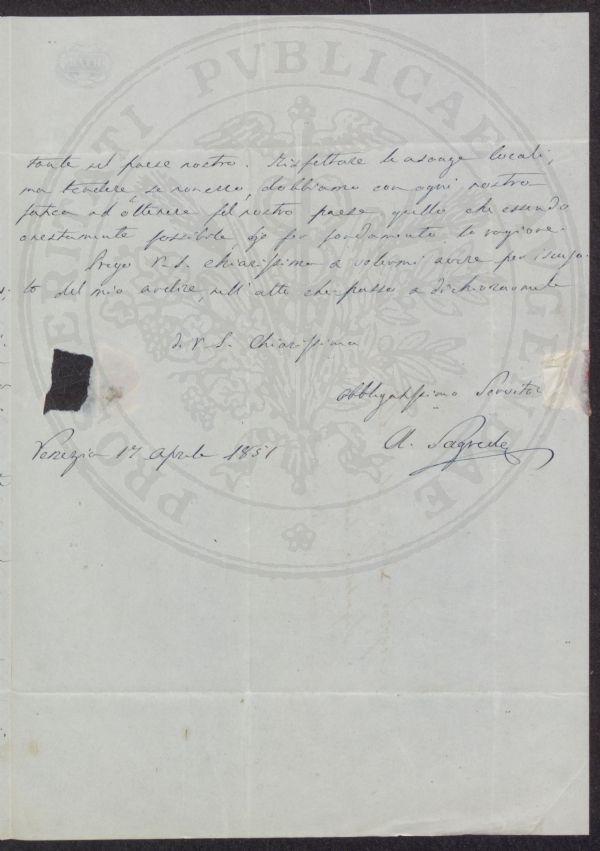 PROSPERITATI PVBLICAE AVGENDAE
tante nel paese nostro. Rispettare le usanze locali,
ma tendere se non erro, dobbiamo con ogni nostra
fatica ad ottenere pel nostro paese quello che essendo
onestamente possibile, ha per fondamento la ragione.
Prego V. S. Chiarissima a volermi avere per iscusa-
to del mio ardire, nell'atto che passo a dichiararmele
di V. S. Chiarissima
Obbligatissimo Servitor
A. Sagredo
Venezia 17 Aprile 1851